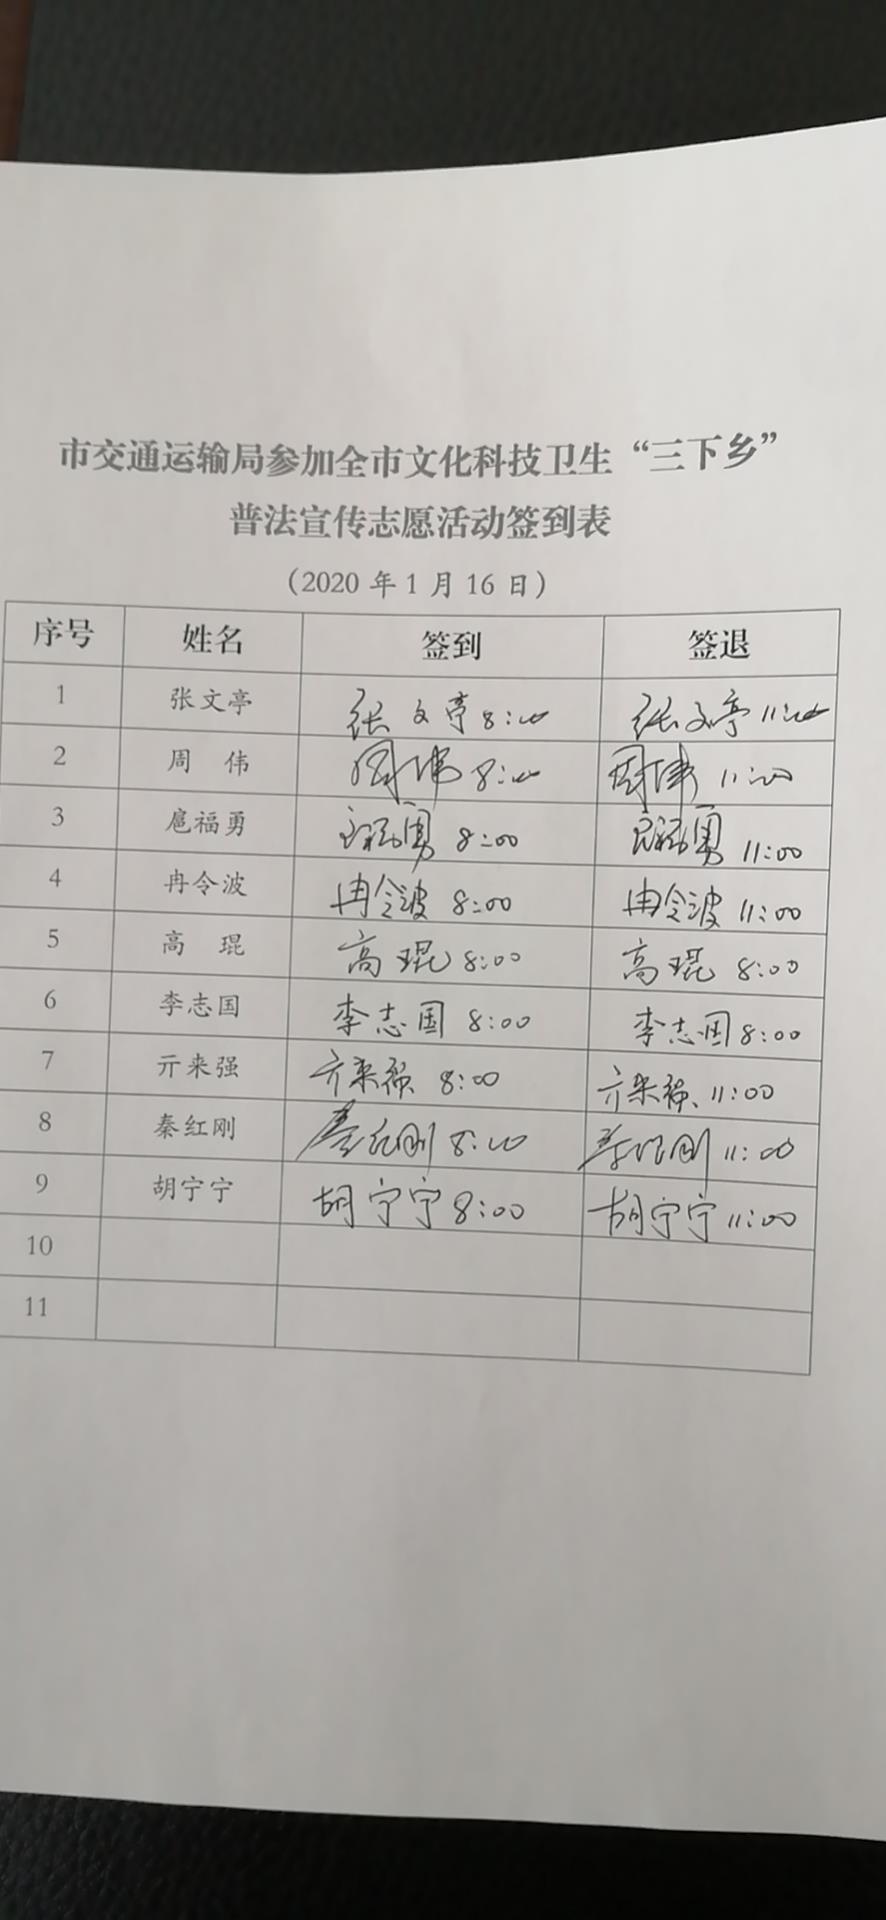 市交通运输局参加全市文化科技卫生“三下乡”
普法宣传志愿活动签到表
（2020 年 1 月 16 日）
序号 姓名 签到 签退
1 张文亭 张文亭 8:00 张文亭 11:00
2 周 伟 周伟 8:00 周伟 11:00
3 扈福勇 扈福勇 8:00 扈福勇 11:00
4 冉令波 冉令波 8:00 冉令波 11:00
5 高 琨 高琨 8:00 高琨 8:00
6 李志国 李志国 8:00 李志国 8:00
7 亓来强 亓来强 8:00 亓来强 11:00
8 秦红刚 秦红刚 8:00 秦红刚 11:00
9 胡宁宁 胡宁宁 8:00 胡宁宁 11:00
10
11